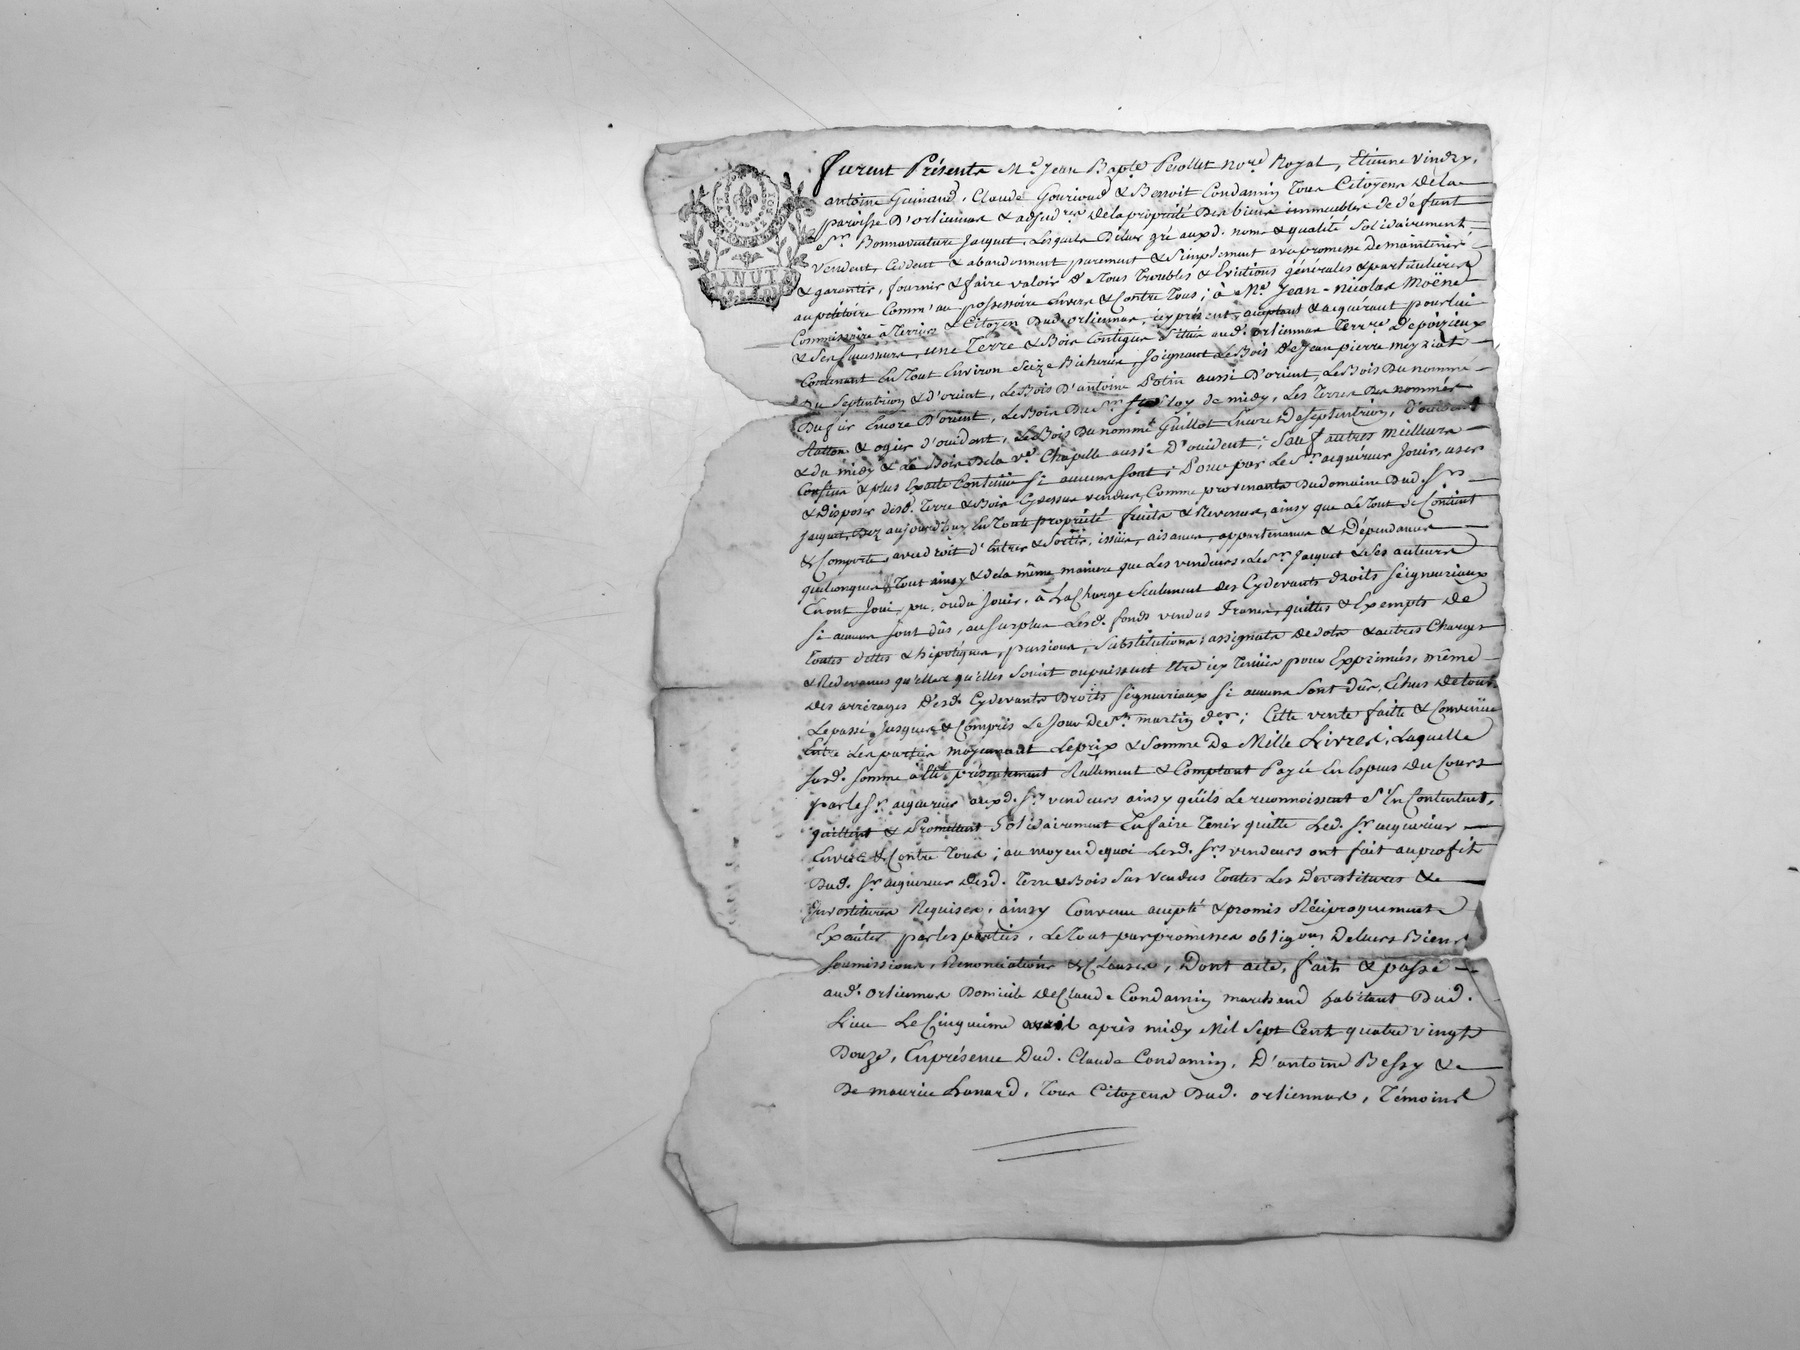 furent Présents Me Jean Bapte Periollet Nore Royal, Etienne Vindry,
antoine Guinand, Claude Gourioud & Benoit Condamin Tous Citoyens de la
paroisse D'orliennas & adjudres de la propriété Des biens immeubles de deffunt
Sr. Bonnaventure Jacquet, Lesquels De leur gré auxd. noms & qualité solidairement,
vendent, Cedent & abandonnent purement & simplement avec promesse De maintenir
& garantir, fournir & faire valoir de tous Troubles & Evictions générales & particulières
au petitoire Comm' au possessoire Envers & Contre Tous; à Me Jean-Nicolas Moëne
Commissaire à Terriers & Citoyen Dud. orliennas, icy présent, acceptant & acquérant pour lui
& ses successeurs, une Terre & Bois Contigus Situés aud. orliennas Terre De
Contenant En Tout Environ Seize Bicherées, Joignant Le Bois De Jean pierre Meyziat
Du Septentrion & d'orient, Le Bois D'antoine Potin aussi D'orient, Le Bois Du nommé
Dufur Encore D'orient, Le Bois Du Sr loy de midy, Les Terres Des nommés
& ogier d'occident, Le Bois Du nommé Guillot Encore De septentrion, d'occident
& du midy & Le Bois De la ve Chapelle aussi D'occident; Sauf autres meilleurs
Confins & plus Exacte Contenue si aucuns sont; Pour par Le Sr acquéreur Jouir, user
& Disposer desd. Terre & Bois Cydessus vendus, Comme provenants Du domaine Dud. Sr
Jacquet, Dez aujourd'huy En Toute propriété fruits & Revenus, ainsy que Le Tout se Contient
& Comporte, avec droit d'Entrées & Sorties, issües, aisances, appartenances & Dépendances
quelconques, Tout ainsy & de la même maniere que Les vendeurs, Le Sr. Jacquet & Ses auteurs
En ont Joui, pu, ou du Jouir, à La Charge Seulement des Cydevants droits Seigneuriaux
si aucuns sont dûs, au surplus Lesd. fonds vendus Francs, quittes & Exempts de
toutes dettes & hipotèques, pensions, substitutions, assignats de dots & autres Charges
& Redevances qu'elles qu'elles soient ou puissent Etre icy Tenües pour Exprimées, même
des arrérages D'esd. Cydevants Droits Seigneuriaux si aucuns sont dûs, Echus de tout
Le passé Jusques & Compris Le Jour De St martin der; Cette vente faite & Convenüe
Entre Les parties moyennant Le prix & Somme De Mille Livres, Laquelle
susd. somme a Eté présentement Réellement & Comptant Payée En Especes Du Cours
par le Sr. acquereur auxd. Srs vendeurs ainsy qu'ils Le reconnoissent s'En Contentent,
quittent & Promettent Solidairement En faire Tenir quitte Led. Sr acquereur
Envers & Contre Tous; au moyen de quoi Lesd. Srs vendeurs ont fait au profit
Dud. Sr acquereur Desd. Terre & Bois sus vendus Toutes Les Devestitures &
Investitures Requises, ainsy Convenu accepté & promis Réciproquement
Exécuter par les parties, Le Tout par promesses oblig'ons De leurs Biens
soumissions, Renonciations & Clauses, Dont acte, fait & passé
aud. orliennas Domicile De Claude Condamin marchand habitant Dud.
Lieu Le Cinquieme avril après midy Mil Sept Cent quatre vingt
Douze, En présence Dud. Claude Condamin, D'antoine Bessy &
De maurice Lunard, Tous Citoyens Dud. orliennas, Témoins